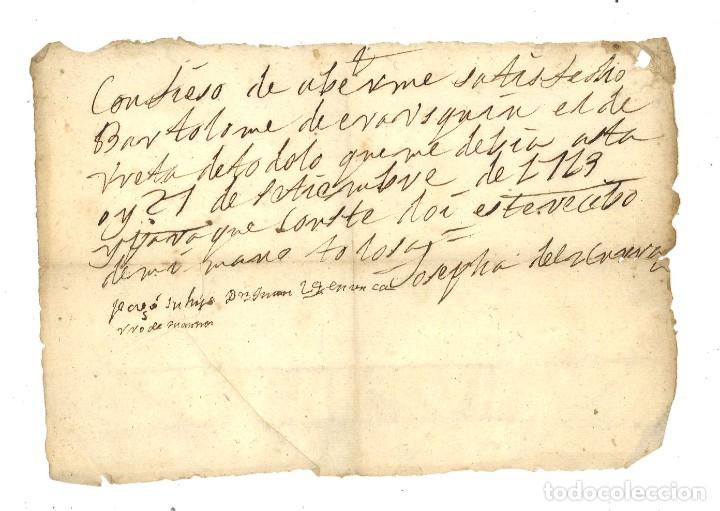 Confieso de aberme satisfecho
Bartolome de erarsquin el de
vreta de todo lo que me debia asta
oy 21 de setiembre de 1719
y para que conste doi este recibo
de mi mano tolosa
Josepha de
pago su hijo Dn Juan
rro de
todocoleccion
todocoleccion.net